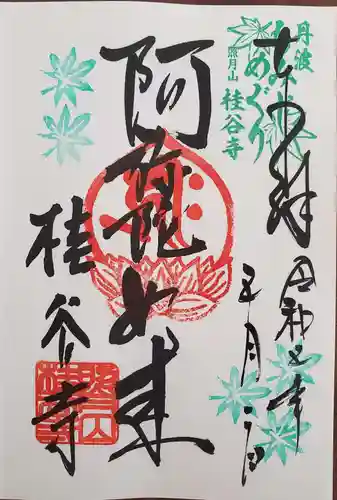 丹波
もみじ
めぐり
照月山
桂谷寺
奉拝
令和五年
五月二日
阿弥陀如来
桂谷寺